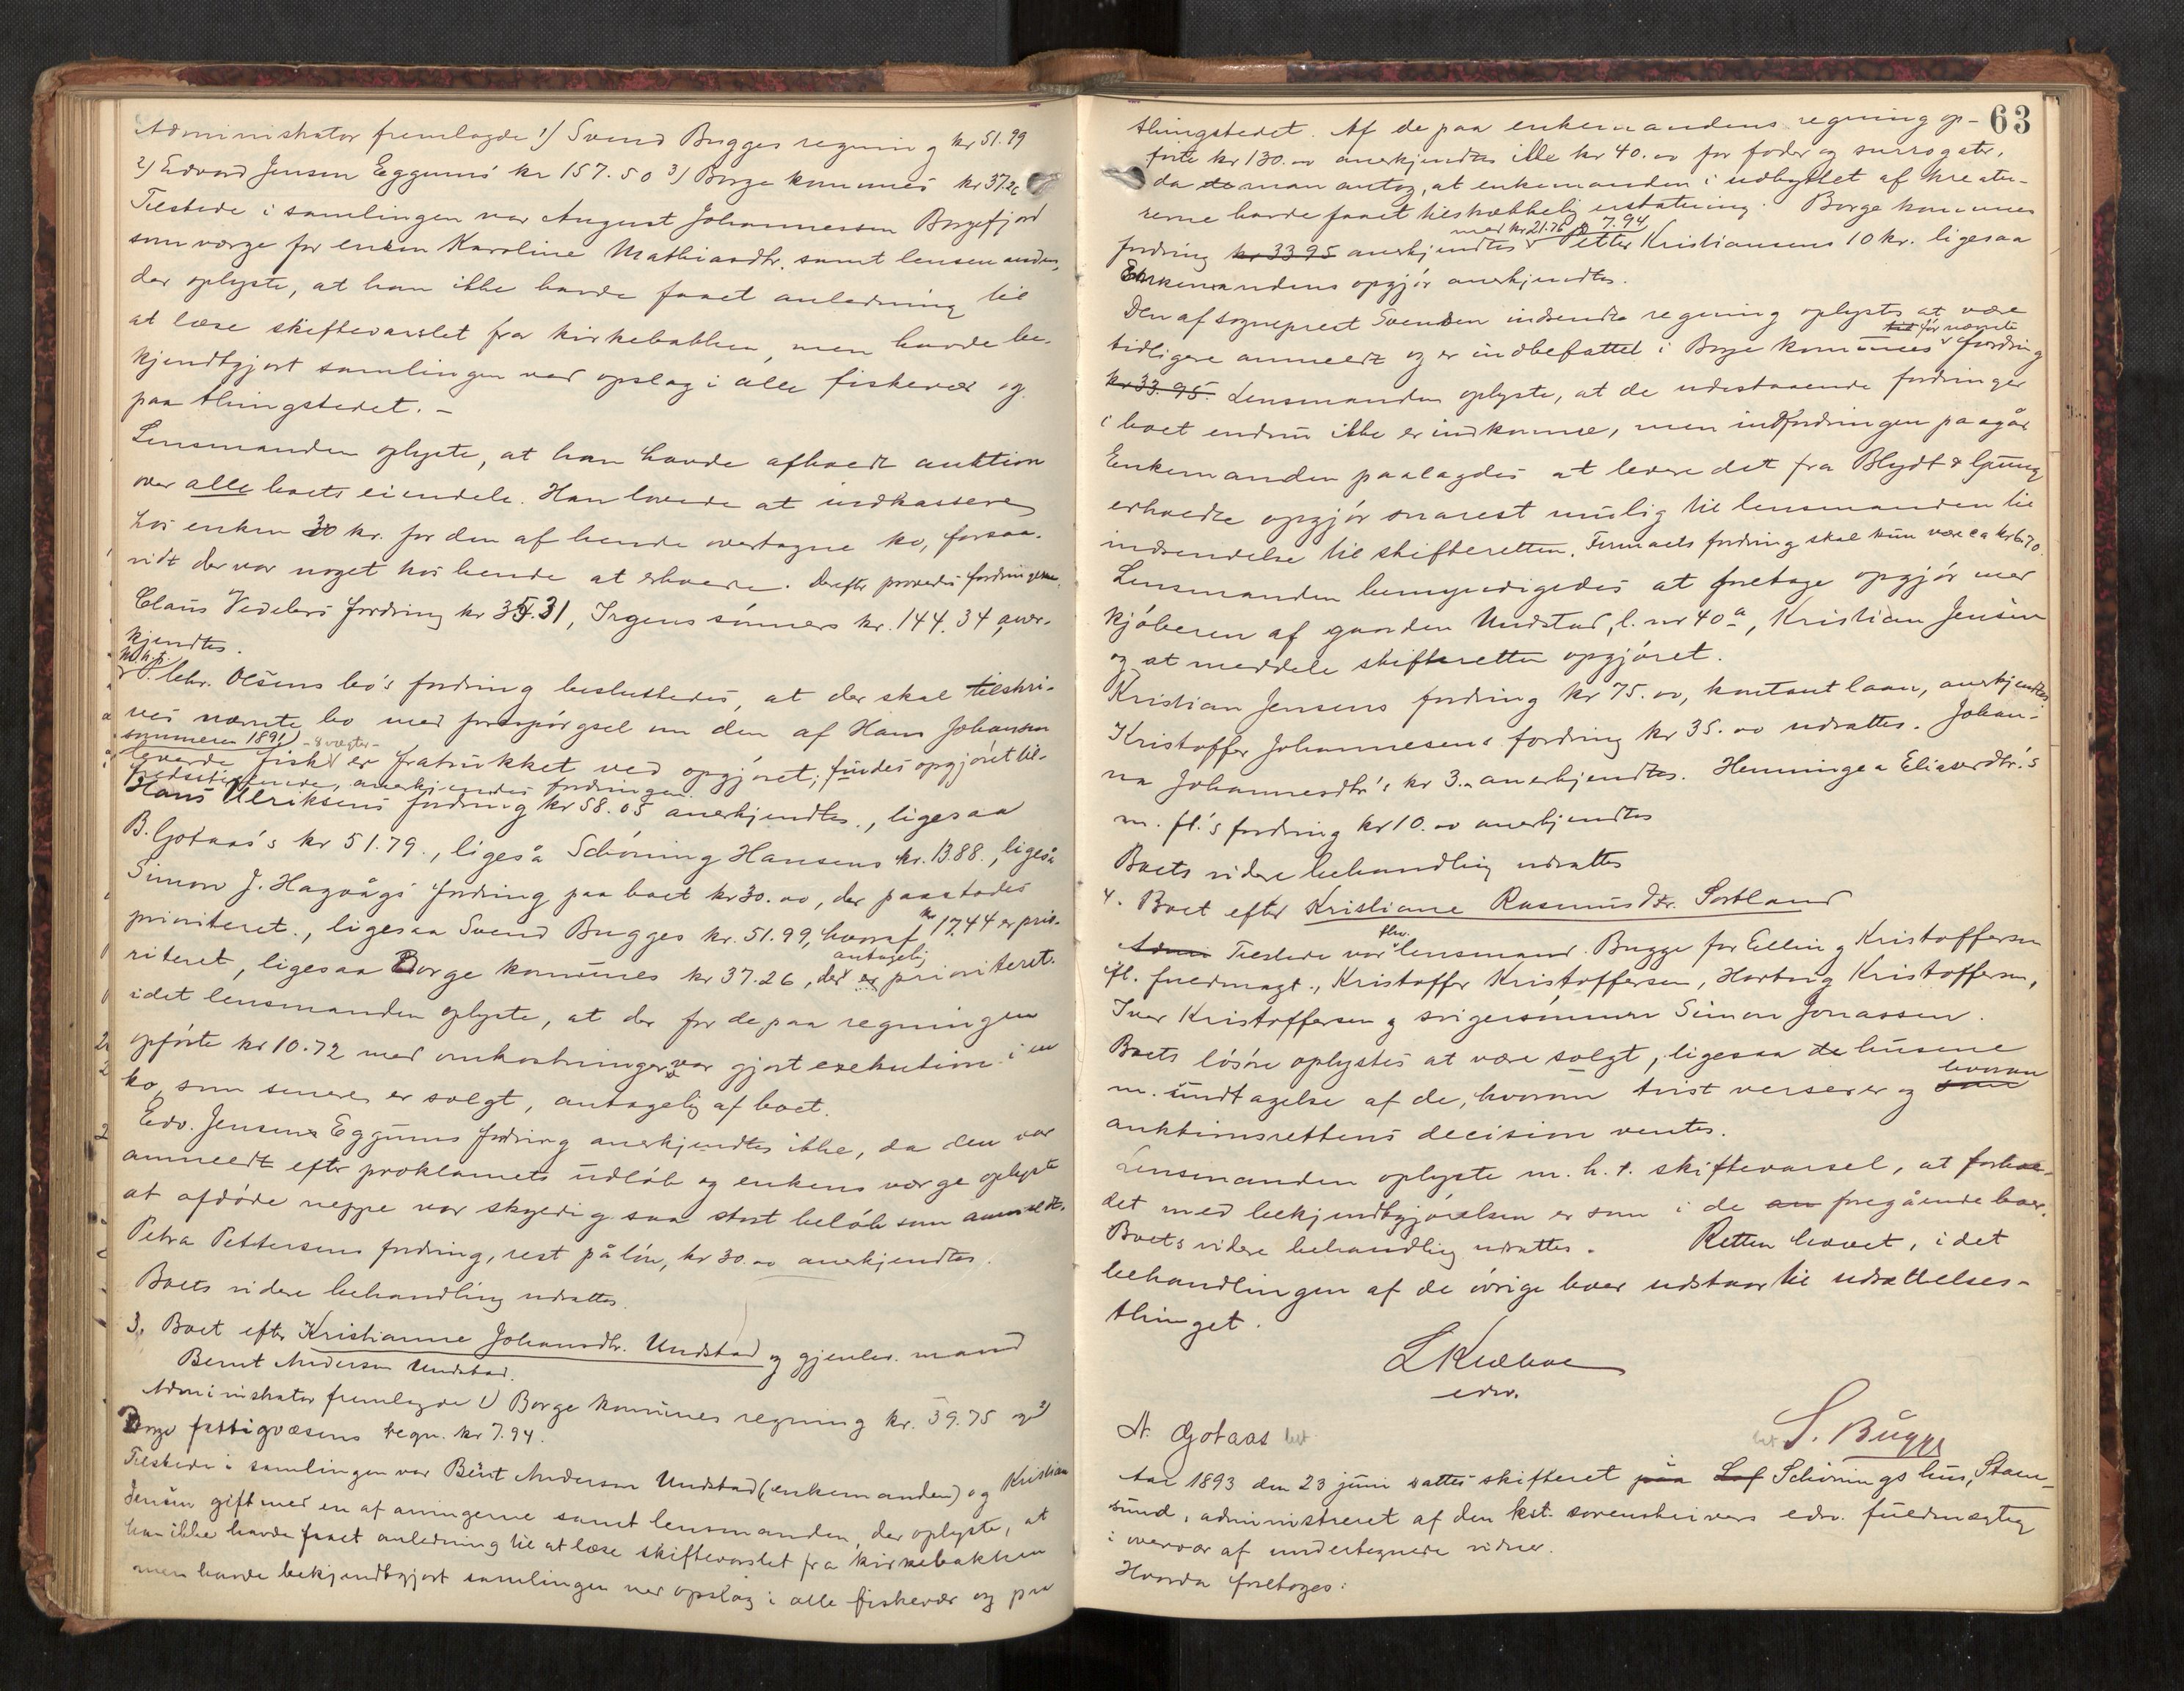 Administrator fremlagde 1) Svend Bugges regning kr 51.99
2) Edvard Jensen Eggums kr 157.50 3) Borge kommunes kr 37.26
Tilstede i samlingen var August Johannessen Borgefjord
som værge for enken Karoline Mathiasdtr. samt lensmanden,
der oplyste, at han ikke havde faaet anledning til
at læse skiftevarslet fra kirkebakken, men havde be-
kjendtgjort samlingen ved opslag i alle fiskevær og
paa thingstedet. –
Lensmanden oplyste, at han havde afholdt auktion
over alle boets eiendele. Han lovede at indkassere
hos enken 30 kr. for den af hende overtagne ko, forsaa-
vidt der var noget hos hende at erholde. Derefter prøvedes fordringerne.
Claus Vedelers fordring kr 35.31, Irgens sønners kr. 144.34 aner-
kjendtes.
M.h.t.
P. Chr. Olsens bo's fordring besluttedes, at der skal tilskri-
ves nævnte bo med forespørgsel om den af Hans Johansen
sommeren 1891 – 8 vægter –
leverede fisk er fratrukket ved opgjøret; findes opgjøret til-
fredsstillende, anerkjendes fordringen.
Hans Ulriksens fordring kr 58.05 anerkjendtes., ligesaa
B. Gotaas's kr 51.79., ligeså Schöning Hansens kr. 13.88., ligeså
Simon J. Hagvågs fordring paa boet kr 30.00, der paastodes
prioriteret., ligesaa Svend Bugges kr. 51.99, hvoraf kr 17.44 er prio-
riteret, ligesaa Borge kommunes kr 37.26, der er antagelig prioriteret.
idet lensmanden oplyste, at der for de paa regningen
opførte kr 10.72 med omkostninger var gjort exekution i en
ko, som senere er solgt, antagelig af boet.
Edv. Jensens Eggums fordring anerkjendtes ikke, da den var
anmeldt efter proklamets udløb og enkens værge oplyste
at afdøde neppe var skyldig saa stort beløb som anmeldt.
Petra Pettersens fordring, rest på løn, kr 30.00 anerkjendtes.
Boets videre behandling udsattes.
3. Boet efter Kristianne Johansdtr. Undstad og gjenlev. mand
Bernt Andersen Undstad.
Administrator fremlagde 1) Borge kommunes regning kr. 39.75 og 2)
Borge fattigvæsens regn. kr 7.94.
Tilstede i samlingen var Bernt Andersen Undstad (enkemanden) og Kristian
Jensen gift med en af arvingerne samt lensmanden, der oplyste, at
han ikke havde faaet anledning til at læse skiftevarslet fra kirkebakken
men havde bekjendtgjort samlingen ved opslag i alle fiskevær og paa
63
thingstedet. Af de paa enkemandens regning op-
førte kr 130.00 anerkjendtes ikke kr 40.00 for foder og surrogater,
da de man antog, at enkemanden i udbyttet af kreatu-
rerne havde faaet tilstrækkelig erstatning. Borge kommunes
med kr 21.76 & 7.94
fordring kr 33 95 anerkjendtes Petter Kristiansens 10 kr. ligesaa
Enkemandens opgjør anerkjendtes.
Den af sogneprest Svendsen indsendte regning oplystes at være
tidligere anmeldt og er indbefattet i Borge kommunes førnævnte fordring
kr 33.95. Lensmanden oplyste, at de udestaaende fordringer
i boet endnu ikke er indkomne, men indfordringen pågår
Enkemanden paalagdes at levere det fra Blydt & Ljung
erholdte opgjør snarest mulig til lensmanden til
indsendelse til skifteretten. Firmaets fordring skal kun være ca kr 6.70.
Lensmanden bemyndigedes at foretage opgjør med
kjøberen af gaarden Undstad, l. nr 40a, Kristian Jensen
og at meddele skifteretten opgjøret.
Kristian Jensens fordring kr 75.00, kontant laan, anerkjendtes
Kristoffer Johannesens fordring kr 35.00 udsattes. Johan-
na Johannesdtr's kr 3.„ anerkjendtes. Henningea Eliasdtr.'s
m. fl.'s fordring kr 10.00 anerkjendtes
Boets videre behandling udsattes
4. Boet efter Kristiane Rasmusdtr. Sortland
Admi Tilstede var fhv. lensmand Bugge for Elling Kristoffersen
ifl. fuldmagt., Kristoffer Kristoffersen, Hartvig Kristoffersen,
Iver Kristoffersen og svigersønnen Simon Jonassen.
Boets løsøre oplystes at være solgt, ligesaa de husene
m. undtagelse af de, hvorom tvist verserer og som hvorom
auktionsrettens decision ventes.
Lensmanden oplyste m. h. t. skiftevarsel, at forhol-
det med bekjendtgjørelsen er som i de an foregående boer.
Boets videre behandling udsattes. Retten hævet, idet
behandlingen af de øvrige boer udstaar til udsættelses-
thinget.
edsv.
A. Gotaas
S. Bugge
Aar 1893 den 23 juni sattes skifteret på Lof Schönings hus, Stam-
sund, administreret af den kst. sorenskrivers edsv. fuldmægtig
i overvær af undertegnede vidner.
Hvorda foretoges: